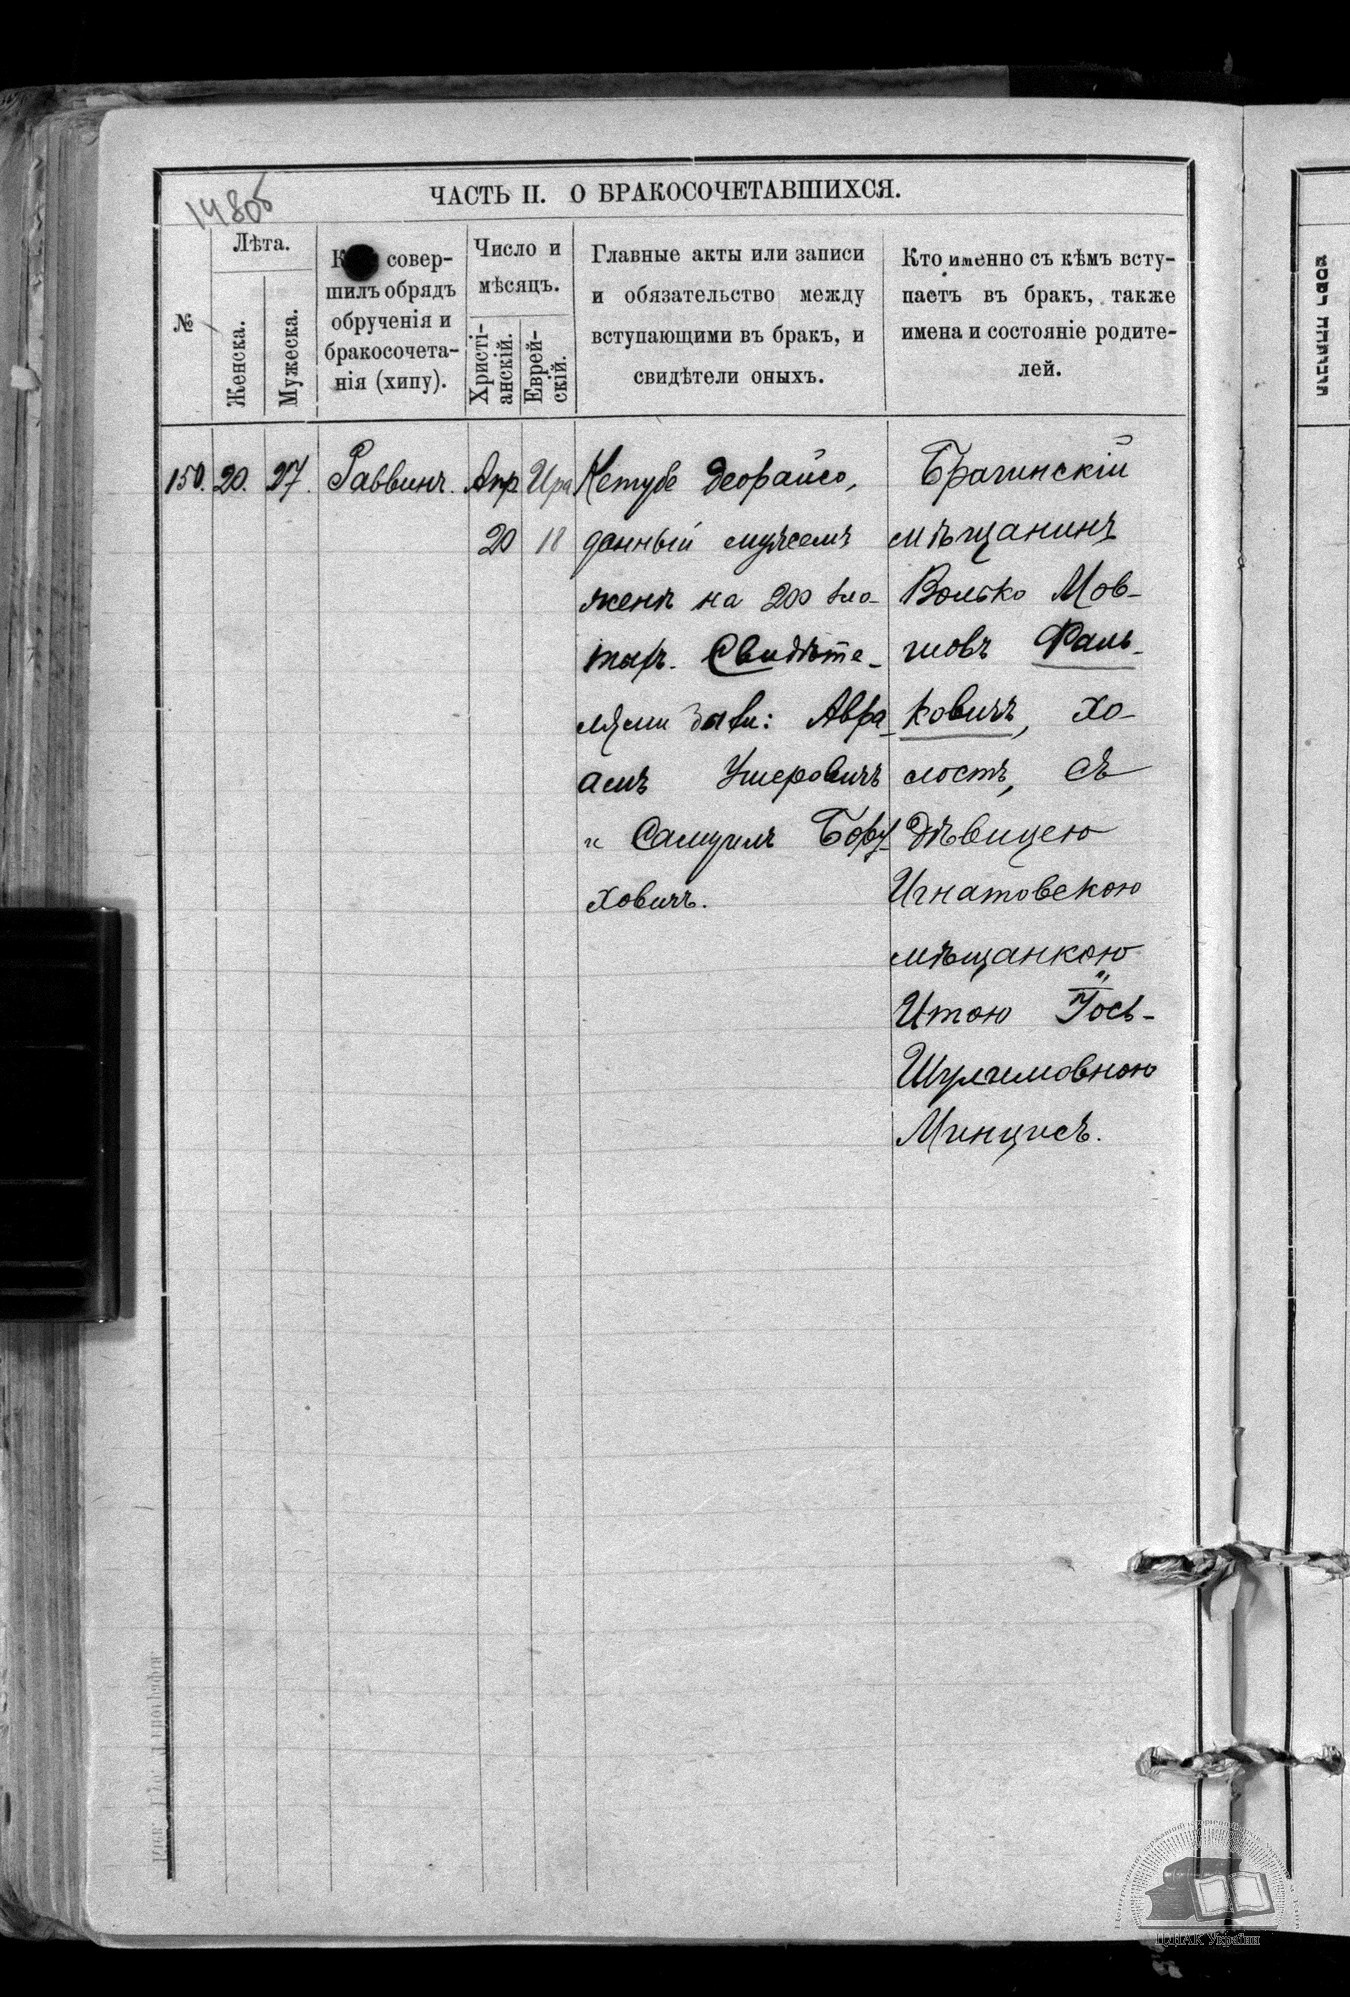 148об
ЧАСТЬ II. О БРАКОСОЧЕТАВШИХСЯ.
№
Лѣта.
Женска.
Мужеска.
К совер-
шилъ обрядъ
обрученія и
бракосочета-
нія (хипу).
Число и
мѣсяцъ.
Христі-
анскій.
Еврей-
скій.
Главные акты или записи
и обязательство между
вступающими въ бракъ, и
свидѣтели оныхъ.
Кто именно съ кѣмъ всту-
паетъ въ бракъ, также
имена и состояніе родите-
лей.
150.
20.
27.
Раввинъ.
Апр
20
Ира
18
Кетубе деорайсо,
данный мужемъ
женѣ на 200 зло-
тыхъ. Свидѣте-
лями были: Авра-
амъ Ушеровичъ
и Самуилъ Бору-
ховичъ.
Брагинскій
мѣщанинъ
Волько Мов-
шовъ Фаль-
ковичъ, хо-
лостъ, съ
дѣвицею
Игнатовскою
мѣщанкою
Итою Іось-
Шулимовною
Минцисъ.
ЦДІАК України